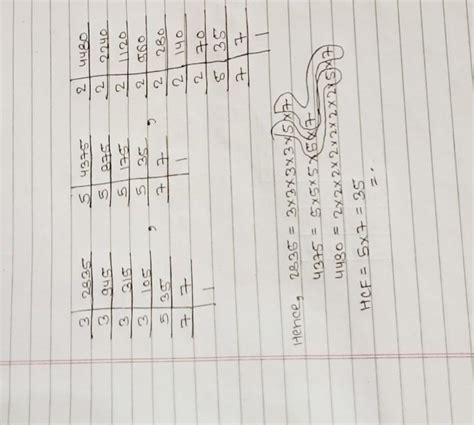 3 2835
3 945
3 315
3 105
5 35
7 7
1
,
5 4375
5 875
5 175
5 35
7 7
1
,
2 4480
2 2240
2 1120
2 560
2 280
2 140
2 70
5 35
7 7
1
Hence, 2835 = 3×3×3×3×5×7
4375 = 5×5×5×5×7
4480 = 2×2×2×2×2×2×2×5×7
HCF = 5×7 = 35